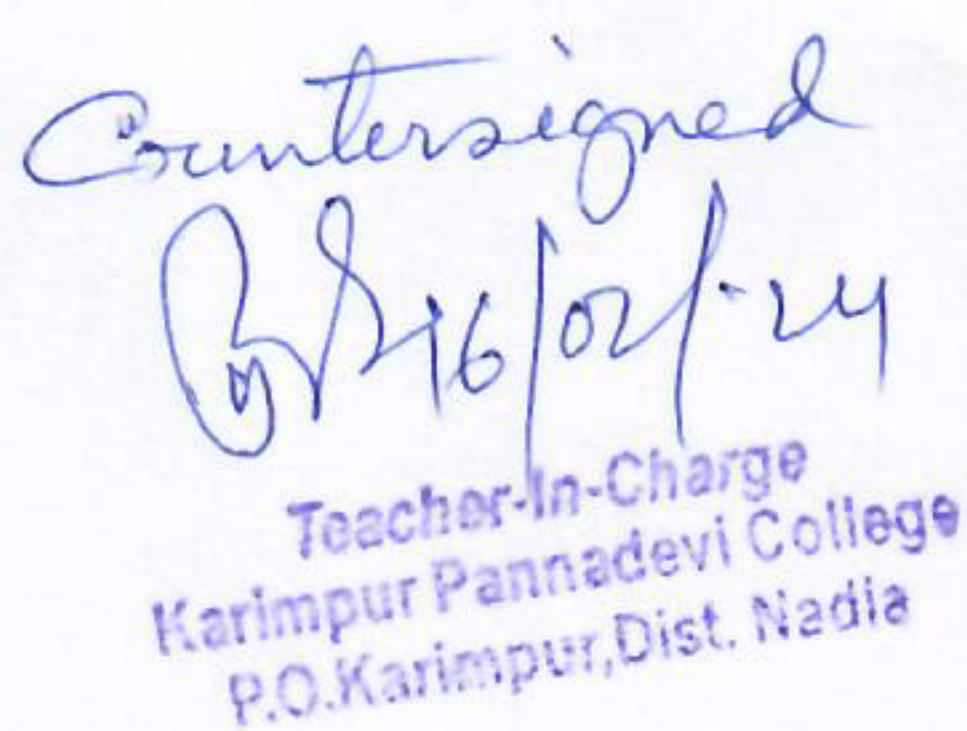 Countersigned
16/02/-24
Teacher-In-Charge
Karimpur Pannadevi College
P.O.Karimpur,Dist. Nadia